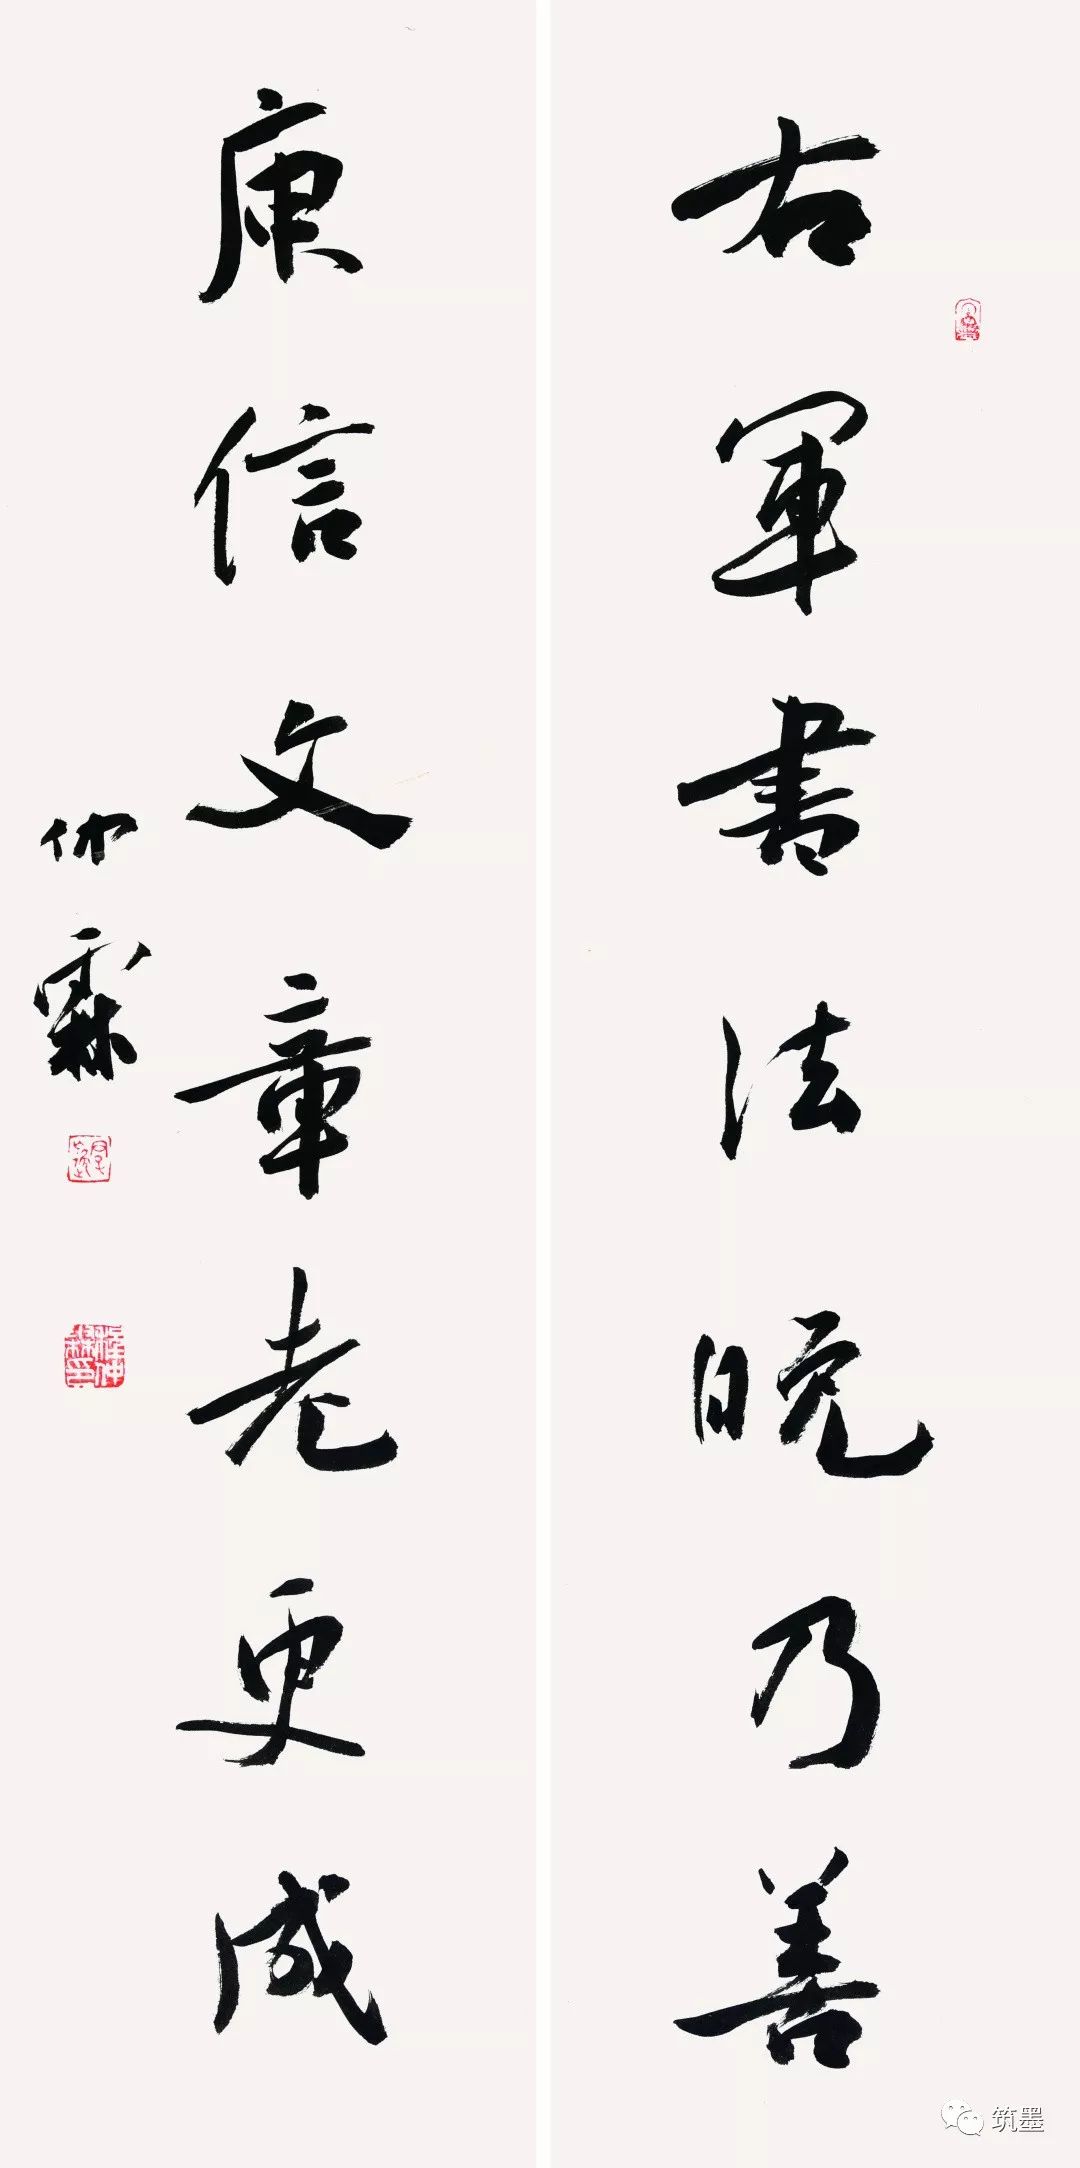 右軍書法晚乃善
庾信文章老更成
仲霖
筑墨